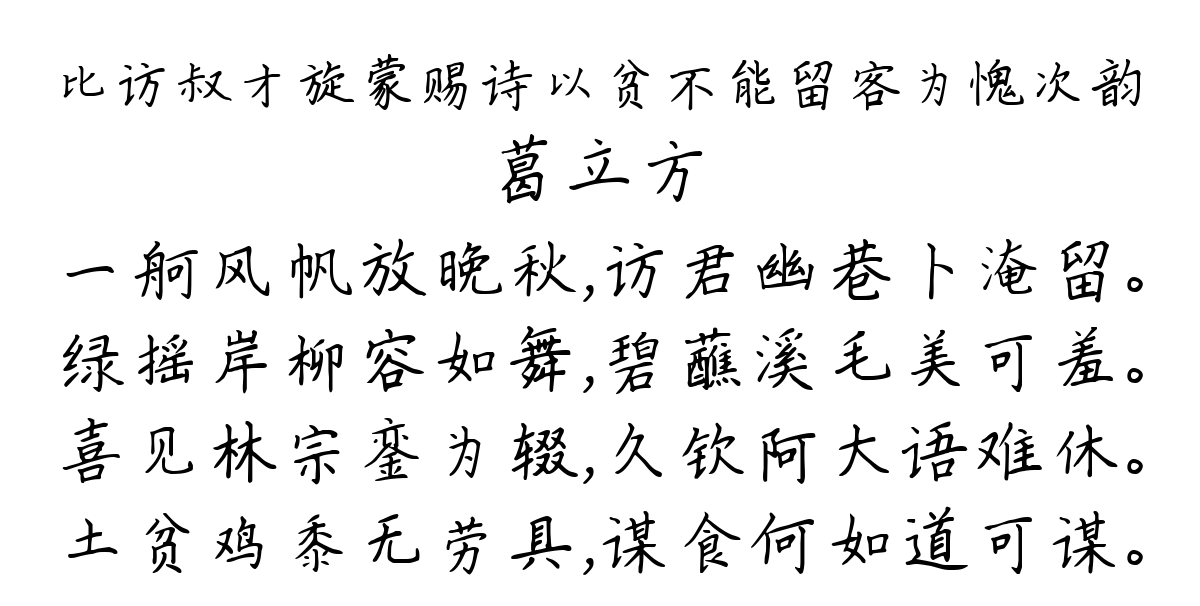 比访叔才旋蒙赐诗以贫不能留客为愧次韵
葛立方
一舸风帆放晚秋,访君幽巷卜淹留。
绿摇岸柳容如舞,碧蘸溪毛美可羞。
喜见林宗銮为辍,久钦阿大语难休。
土贫鸡黍无劳具,谋食何如道可谋。